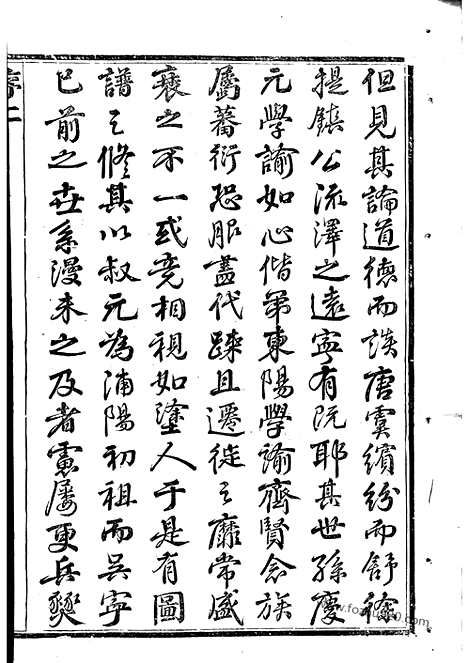 但見其論道德而談唐虞繽紛而舒徐
提鎮公流澤之遠寧有既耶其世孫慶
元學諭如心偕弟東陽學諭齊賢念族
屬蕃衍恐服盡代踈且遷徙之靡常盛
衰之不一或竟相視如塗人于是有圖
譜之脩其以叔元為浦陽初祖而吳寧
已前之世系漫未之及者慮屢更兵燹
序二